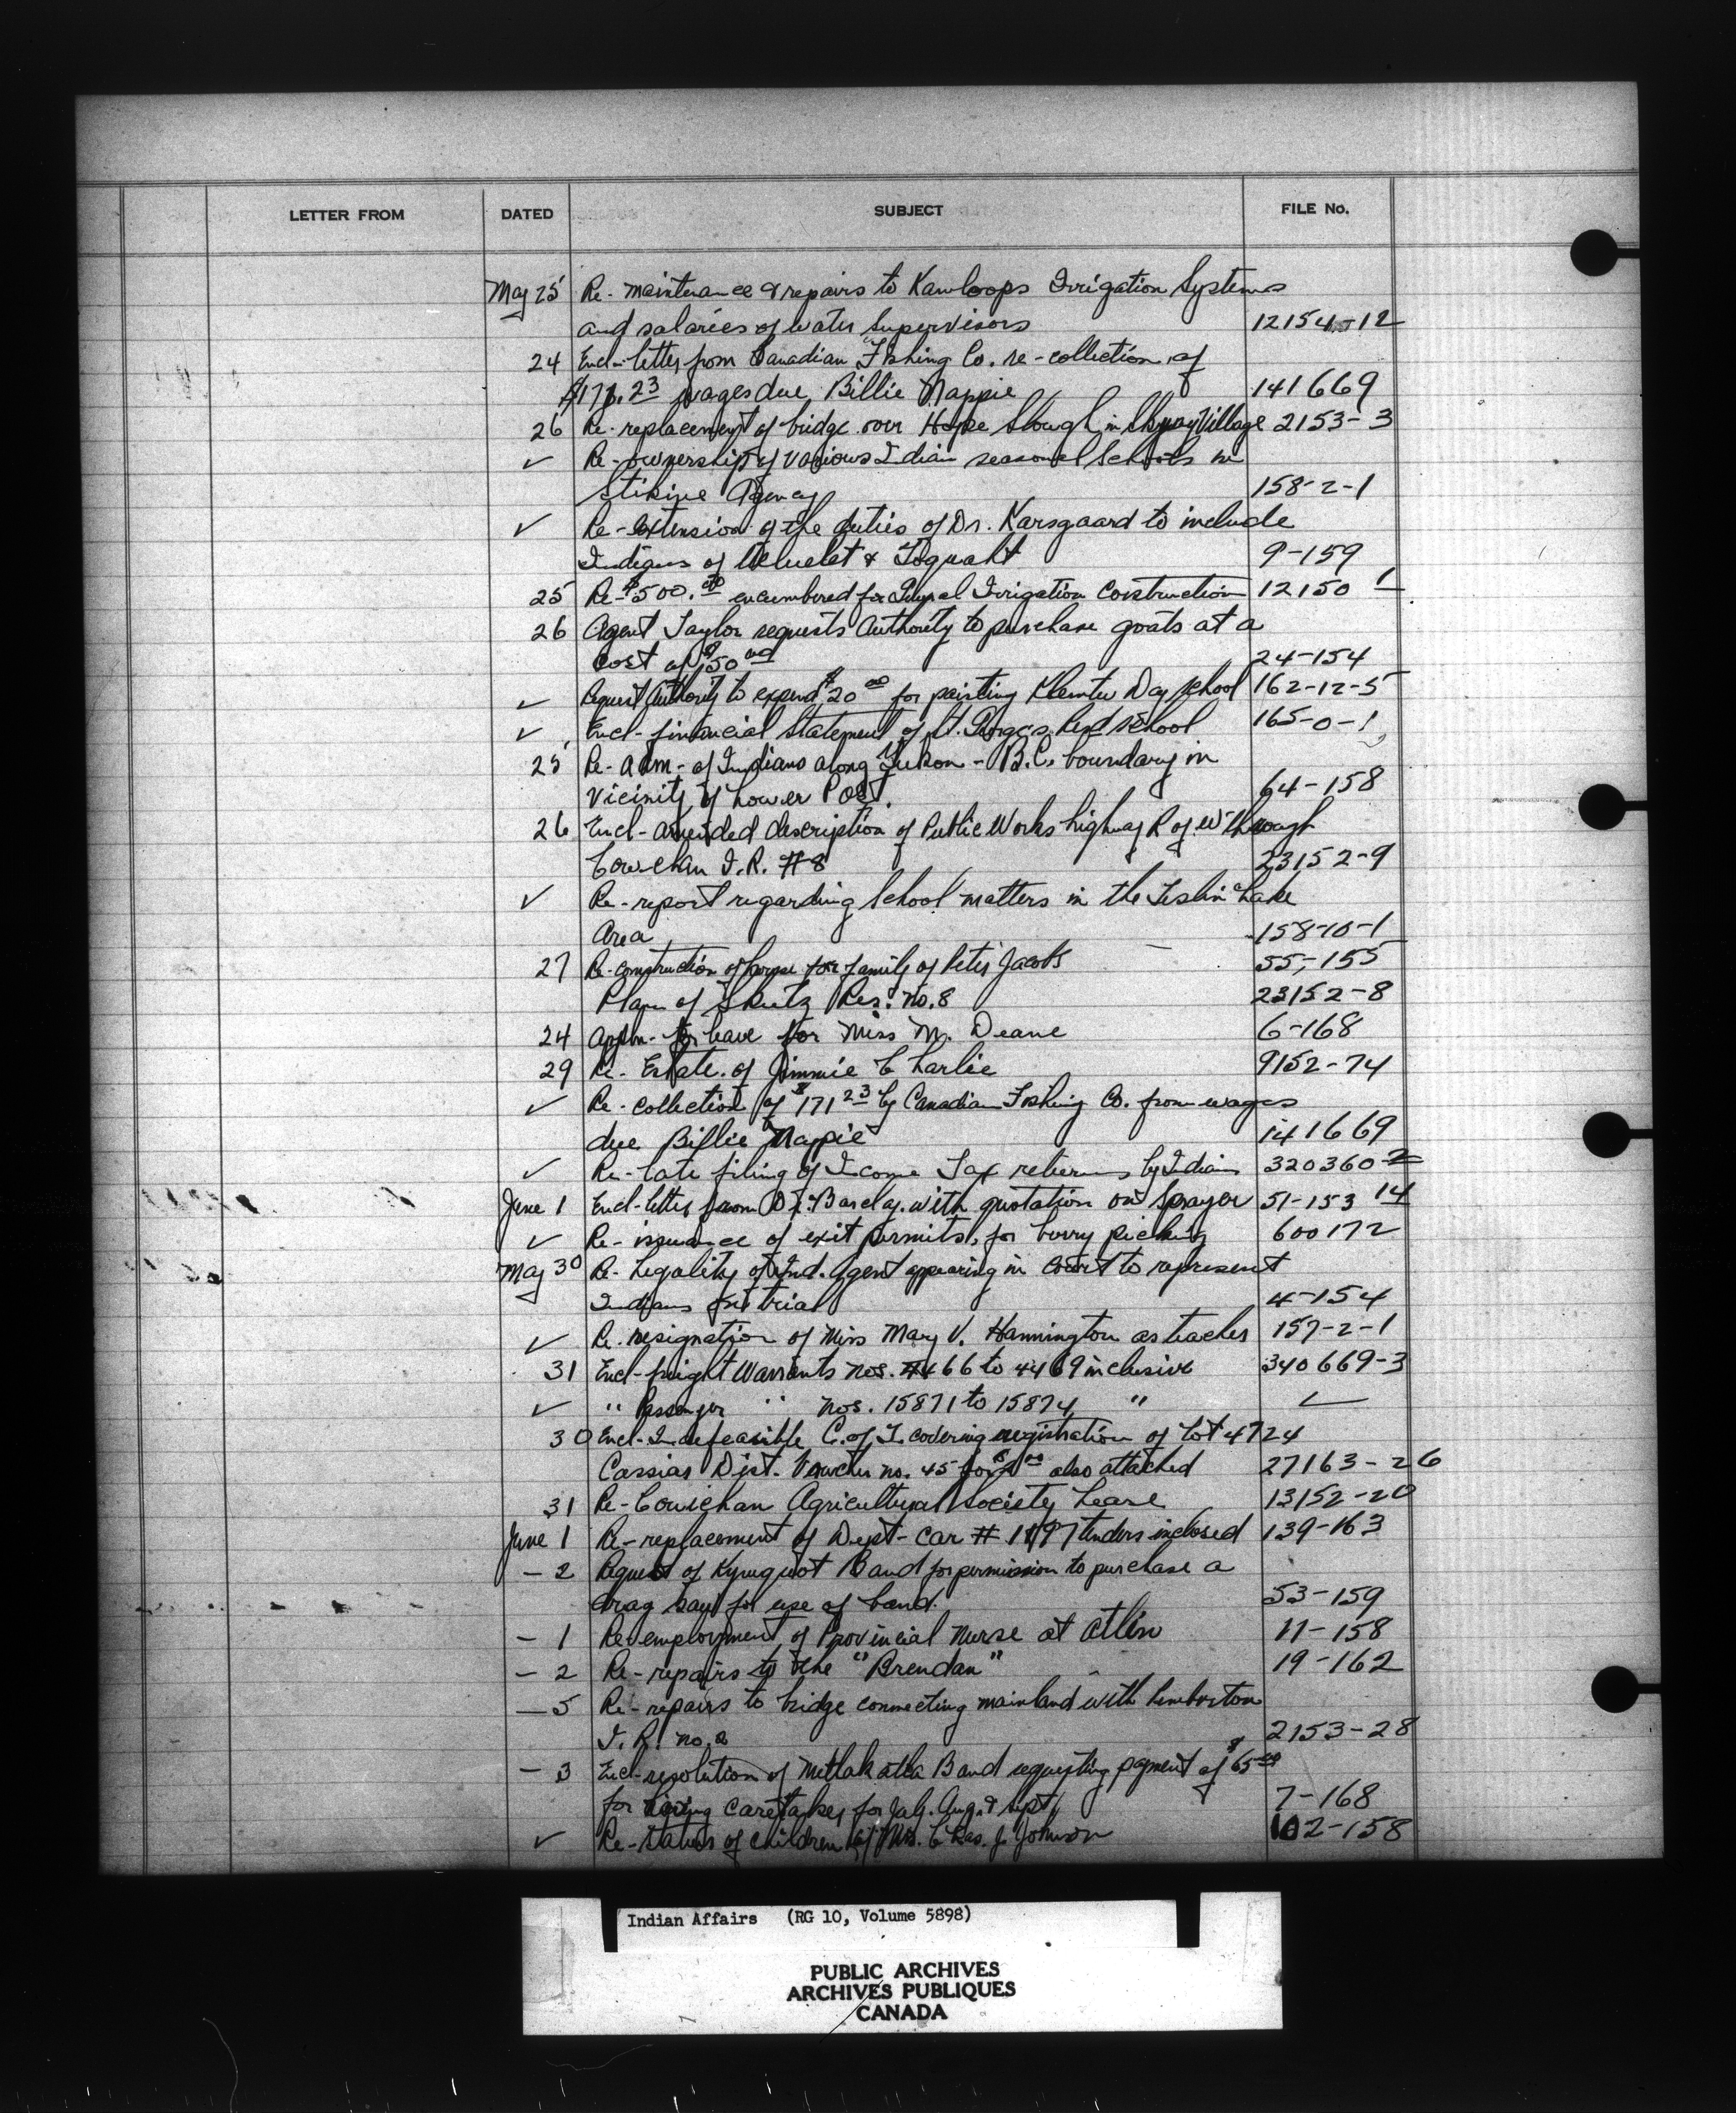 LETTER FROM DATED SUBJECT FILE No.
May 25 Re- maintenance & repairs to Kamloops Irrigation Systems
and salaries of water Supervisors 12154-12
24 Encl-letter from Canadian Fishing Co. re-collection of
$171.23 wages due Billie Nappie 141669
26 Re-replacement of bridge over Hope Slough in Skway Village 2153-3
✓ Re-ownership of various Indian seasonal Schools in
Stikine Agency 158-2-1
✓ Re-extension of the duties of Dr. Karsgaard to include
Indians of Ucluelet & Toquaht 9-159
25 Re-$500.00 encumbered for Irrigation Construction 12150 1
26 Agent Taylor requests Authority to purchase goats at a
cost of $50 00 24-154
✓ Request Authority to expend $20 00 for painting Klemtu Day School 162-12-5
✓ Encl-financial Statement of St. Georges Resd School 165-0-1
25 Re-adm-of Indians along Yukon-B.C. boundary in
Vicinity of Lower Post. 64-158
26 Encl-amended description of Public Works highway R of W through
Cowichan I.R. #8 23152-9
✓ Re-report regarding School matters in the Teslin Lake
Area 158-10-1
27 Re-construction of house for family of Peter Jacobs 55-155
Plan of Skutz Res. No.8 23152-8
24 Appln-for leave for Miss M. Deane 6-168
29 Re-Estate of Jimmie Charlie 9152-74
✓ Re-collection of $171 23 by Canadian Fishing Co. from wages
due Billie Nappie 141669
✓ Re-Late filing of Income Tax returns by Indians 320360-2
June 1 Encl-letter from Dr. Barclay with quotation on Sprayer 51-153 14
✓ Re-issuance of exit permits for berry picking 600172
May 30 Re-Legality of Ind. Agent appearing in Court to represent
Indians on trial 4-154
✓ Re-resignation of Miss Mary V. Hannington as teacher 157-2-1
31 Encl-freight Warrants nos. 4466 to 4469 inclusive 340669-3
✓ " Passenger " nos. 15871 to 15874 " ✓
30 Encl-Indefeasible C. of T. covering registration of Lot 4724
Cassiar Dist. Voucher no. 45 for also attached 27163-26
31 Re-Cowichan Agricultural Society Lease 13152-20
June 1 Re-replacement of Dept-car # 1197 tenders inclosed 139-163
- 2 Request of Kyuquot Band for permission to purchase a
drag saw for use of band. 53-159
- 1 Re-employment of Provincial Nurse at Atlin 11-158
- 2 Re-repairs to the "Brendan" 19-162
- 5 Re-repairs to bridge connecting mainland with Pemberton
I.R. no.2 2153-28
- 3 Encl-resolution of Metlakatla Band requesting payment of $65 00
for hiring Caretaker for July. Aug. & Sept, 7-168
✓ Re-status of children of Mrs. Chas. J. Johnson 102-158
Indian Affairs (RG 10, Volume 5898)
PUBLIC ARCHIVES
ARCHIVES PUBLIQUES
CANADA